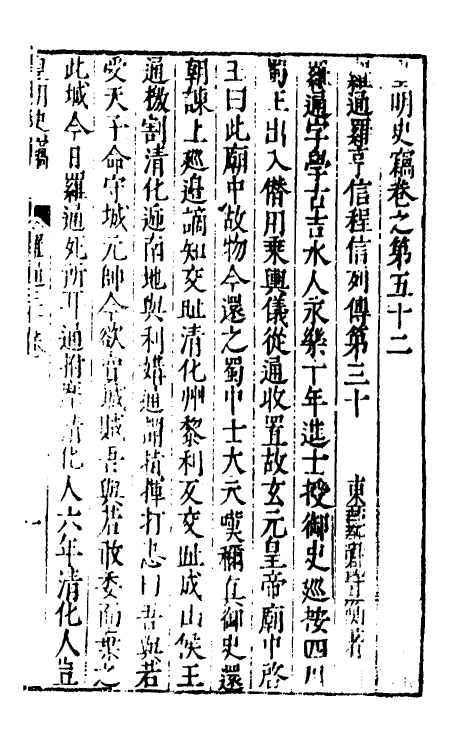 皇明史竊卷之第五十二
羅通羅亨信程信列傳第三十 東莞尹守衡著
羅通字學古吉水人永樂十年進士授御史巡按四川
蜀王出入僭用乘輿儀從通收置故玄元皇帝廟中啓
王曰此廟中故物今還之蜀中士大夫嘆稱真御史還
朝諫上廵邊謫知交阯清化州黎利反交阯成山侯王
通檄割清化迤南地與利媾通謂指揮打忠曰吾與若
受天子命守城元帥令欲賣城賊吾與若敢委而棄之
此城今日羅通死所耳通拊 清化人六年清化人豈
皇明史竊 羅通 一